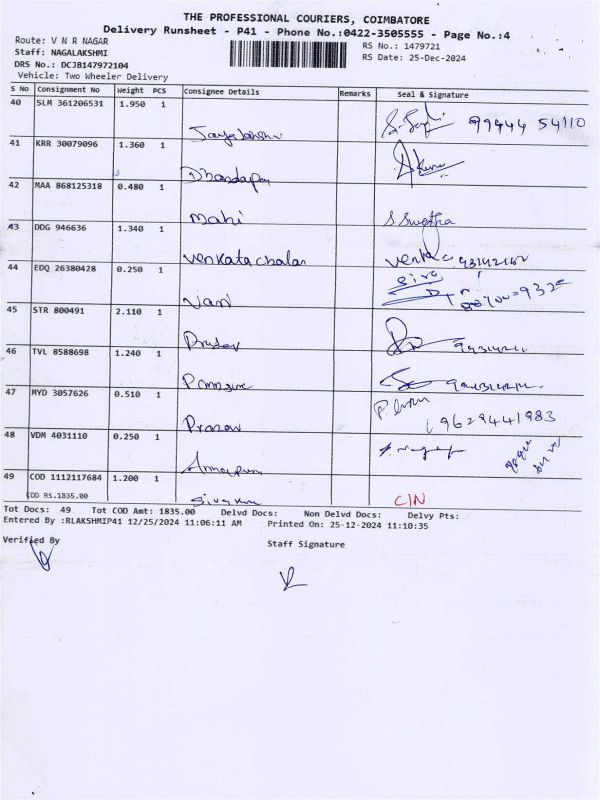 THE PROFESSIONAL COURIERS, COIMBATORE
Delivery Runsheet - P41 - Phone No.:0422-3505555 - Page No.:4
Route: V N R NAGAR
RS No.: 1479721
Staff: NAGALAKSHMI
RS Date: 25-Dec-2024
DRS No.: DCJB147972104
Vehicle: Two Wheeler Delivery
S No Consignment No Weight PCS Consignee Details Remarks Seal & Signature
40 SLM 361206531 1.950 1 99444 54110
41 KRR 30079096 1.360 1
42 MAA 868125318 0.480 1
Mahi S. Swetha
43 DDG 946636 1.340 1
Venkatachalan
44 EDQ 26380428 0.250 1
Vani
45 STR 800491 2.110 1
46 TVL 8588698 1.240 1
47 MYD 3057626 0.510 1
9629441983
48 VDM 4031110 0.250 1
49 COD 1112117684 1.200 1
COD RS.1835.00 CIN
Tot Docs: 49 Tot COD Amt: 1835.00 Delvd Docs: Non Delvd Docs: Delvy Pts:
Entered By :RLAKSHMIP41 12/25/2024 11:06:11 AM Printed On: 25-12-2024 11:10:35
Verified By
Staff Signature